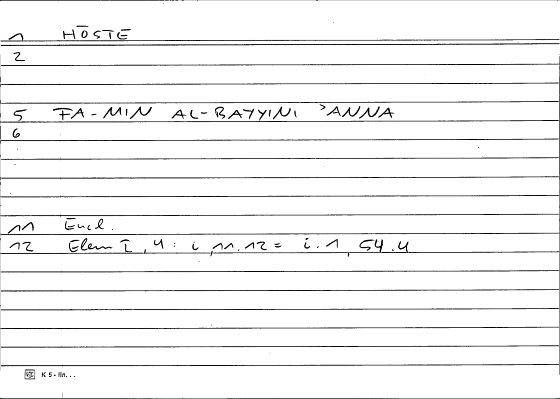 1 HŌSTE
2
5 FA-MIN AL-BAYYINI ʾANNA
6
11 Eucl.
12 Elem I, 4 : i, 11.12 = i.1, 54.4
K 5 - lin...